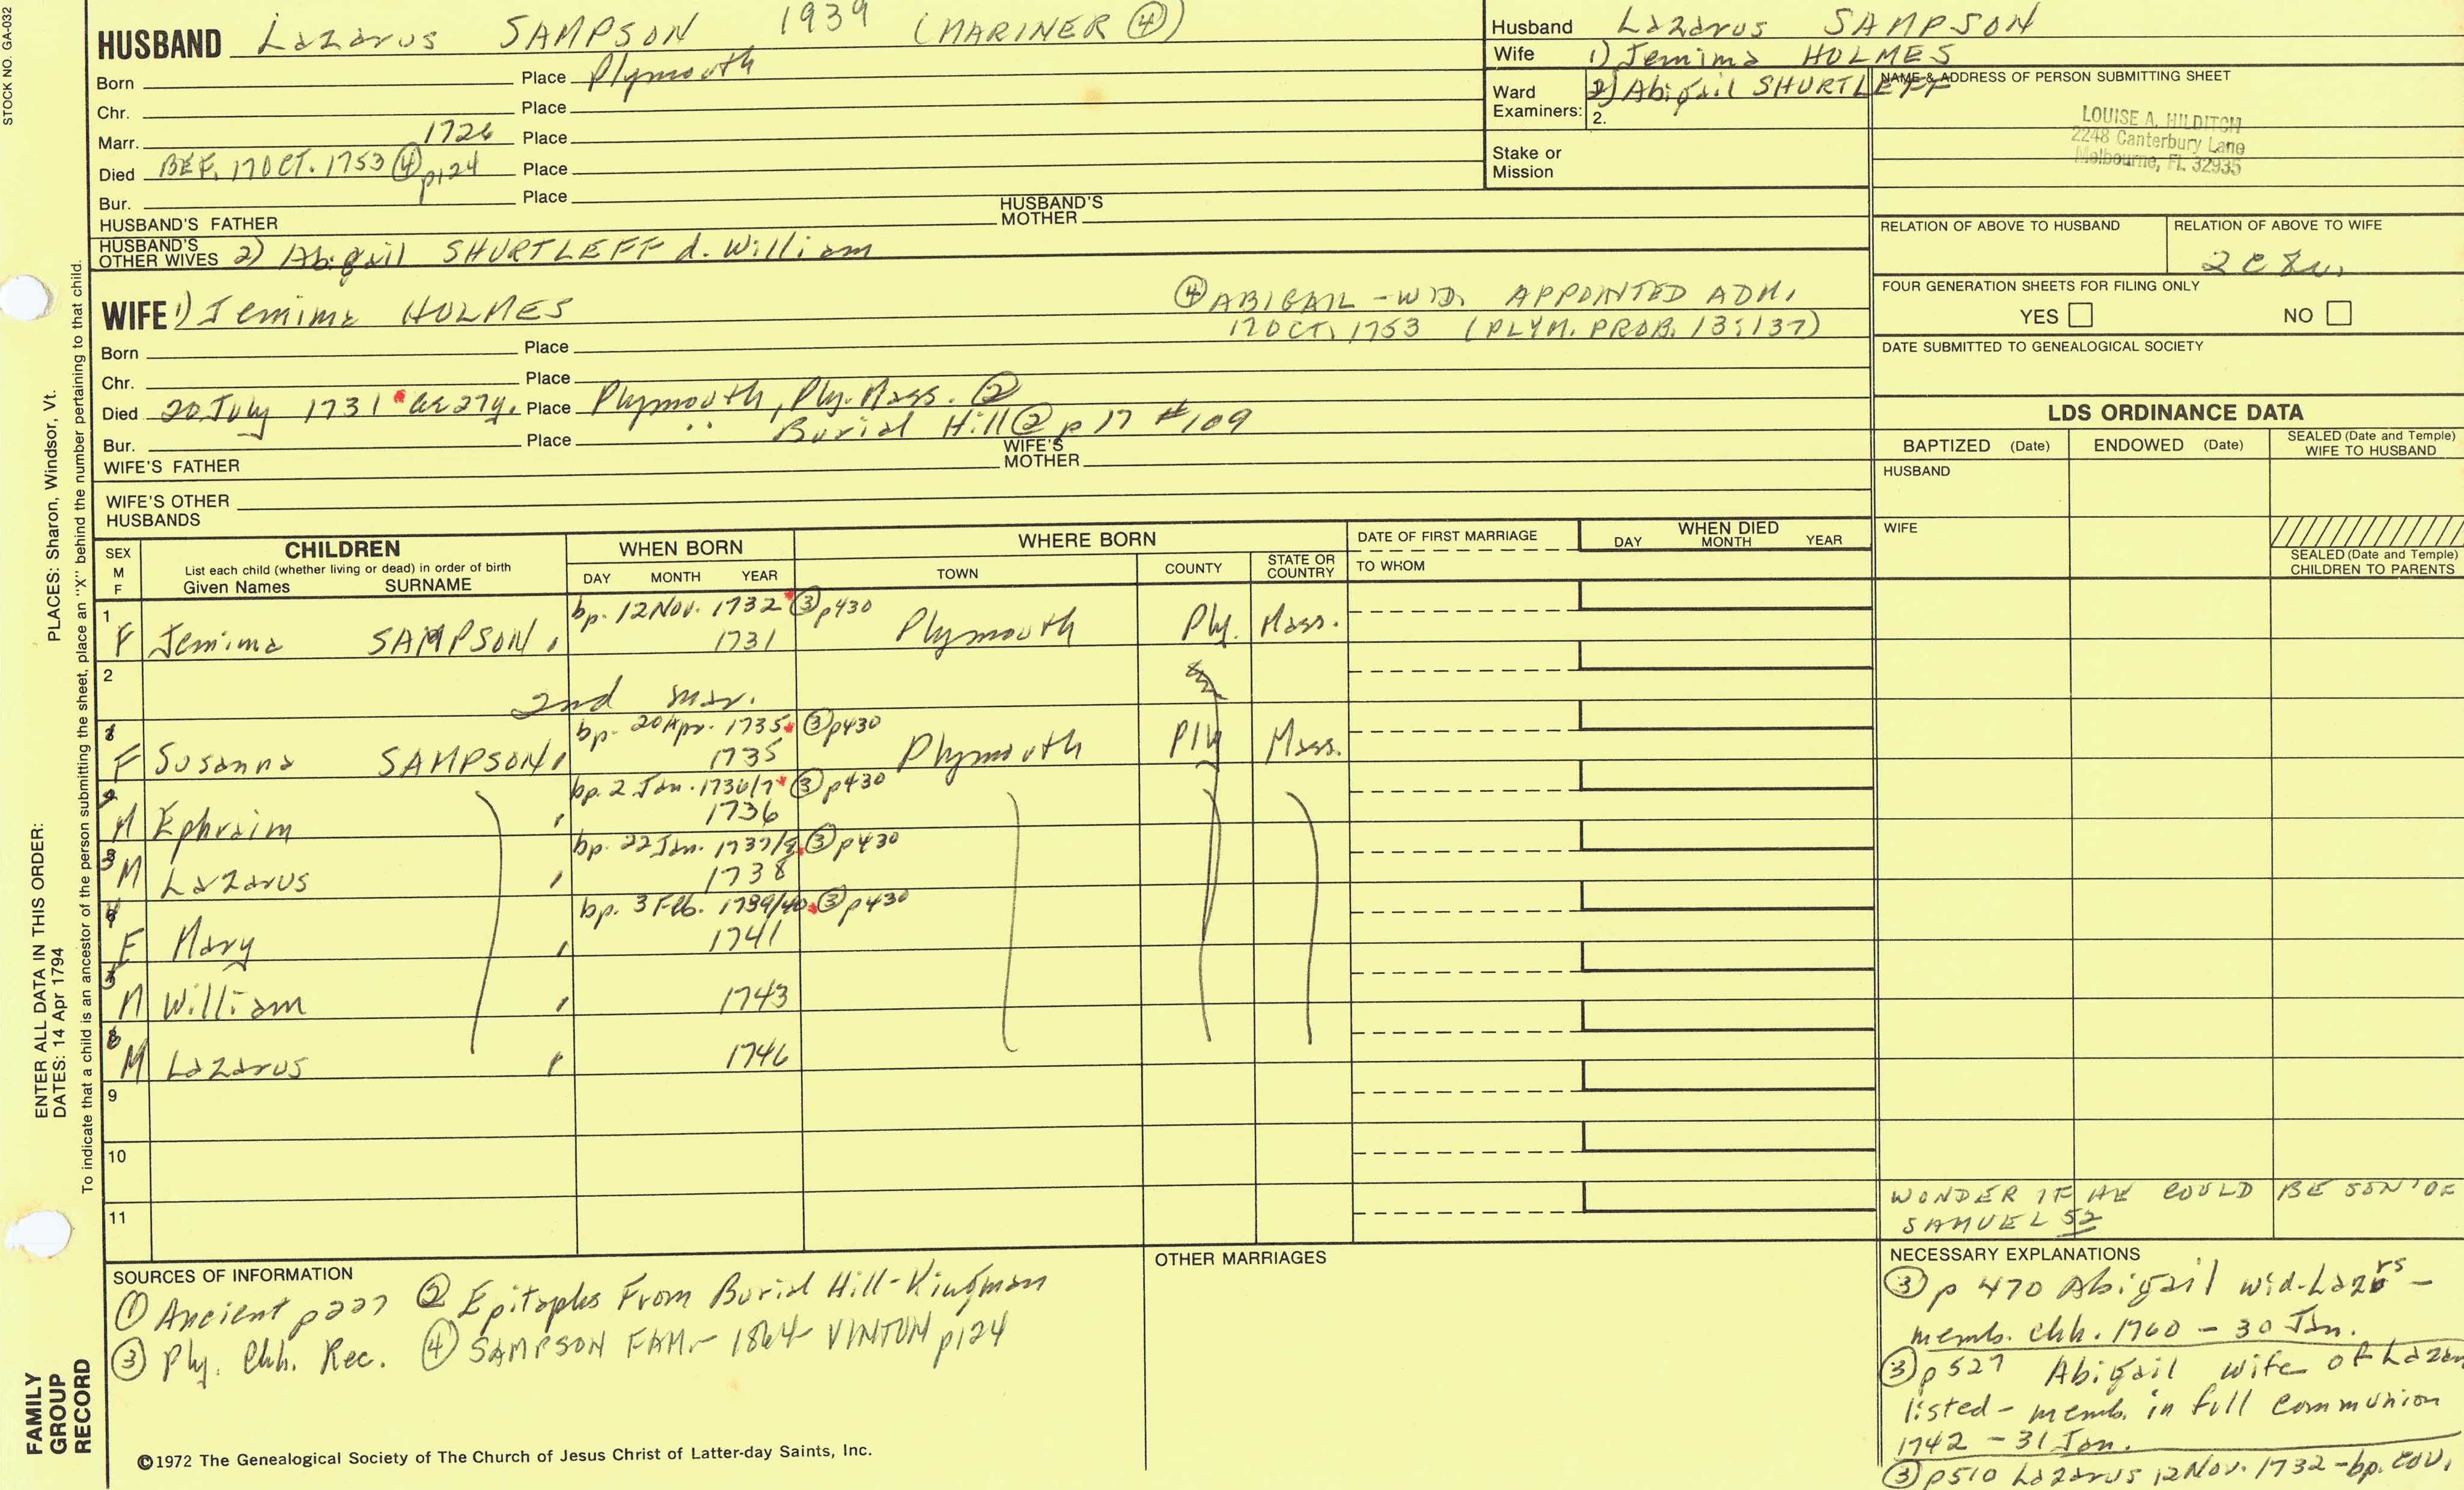 STOCK NO. GA-032
HUSBAND Lazarus SAMPSON 1939 (MARINER ④)
Born Place Plymouth
Chr. Place
Marr. 1726 Place
Died BEF. 17 OCT. 1753 ④ p124 Place
Bur. Place
HUSBAND'S FATHER HUSBAND'S MOTHER
HUSBAND'S OTHER WIVES 2) Abigail SHURTLEFF d. William
WIFE 1) Jemima HOLMES
④ ABIGAIL - WID. APPOINTED ADM.
17 OCT. 1753 (PLYM. PROB. 13:137)
Born Place
Chr. Place
Died 20 July 1731 ae 27y. Place Plymouth, Ply. Mass. ②
Bur. Place " Burial Hill ② p 17 #109
WIFE'S FATHER WIFE'S MOTHER
WIFE'S OTHER HUSBANDS
Husband Lazarus SAMPSON
Wife 1) Jemima HOLMES
Ward Examiners: 2) Abigail SHURTLEFF
2.
Stake or Mission
NAME & ADDRESS OF PERSON SUBMITTING SHEET
LOUISE A. HILDITCH
2248 Canterbury Lane
Melbourne, FL 32935
RELATION OF ABOVE TO HUSBAND RELATION OF ABOVE TO WIFE
FOUR GENERATION SHEETS FOR FILING ONLY
YES NO
DATE SUBMITTED TO GENEALOGICAL SOCIETY
LDS ORDINANCE DATA
BAPTIZED (Date) ENDOWED (Date) SEALED (Date and Temple) WIFE TO HUSBAND
HUSBAND
WIFE
SEALED (Date and Temple) CHILDREN TO PARENTS
SEX M F
CHILDREN
List each child (whether living or dead) in order of birth
Given Names SURNAME
WHEN BORN
DAY MONTH YEAR
WHERE BORN
TOWN COUNTY STATE OR COUNTRY
DATE OF FIRST MARRIAGE
TO WHOM
WHEN DIED
DAY MONTH YEAR
1 bp. 12 Nov. 1732 ③ p430
F Jemima SAMPSON 1731 Plymouth Ply. Mass.
2
2nd mar.
1 bp. 20 Apr. 1735 ③ p430
F Susanna SAMPSON 1735 Plymouth Ply Mass.
2 bp. 2 Jan. 1736/7 ③ p430
M Ephraim 1736
3 bp. 22 Jan. 1737/8 ③ p430
M Lazarus 1738
4 bp. 3 Feb. 1739/40 ③ p430
F Mary 1741
5
M William 1743
6
M Lazarus 1746
9
10
11
WONDER IF HE COULD BE SON OF
SAMUEL 52
SOURCES OF INFORMATION
① Ancient p227 ② Epitaphs From Burial Hill - Kingman
③ Ply. Chh. Rec. ④ SAMPSON FAM - 1864 - VINTON p124
OTHER MARRIAGES
NECESSARY EXPLANATIONS
③ p 470 Abigail wid. Lazrs -
memb. chh. 1760 - 30 Jan.
③ p527 Abigail wife of Lazar
listed - memb. in full communion
1742 - 31 Jan.
③ p510 Lazarus 12 Nov. 1732 - bp. cov.
©1972 The Genealogical Society of The Church of Jesus Christ of Latter-day Saints, Inc.
FAMILY GROUP RECORD
ENTER ALL DATA IN THIS ORDER:
DATES: 14 Apr 1794
PLACES: Sharon, Windsor, Vt.
To indicate that a child is an ancestor of the person submitting the sheet, place an "X" behind the number pertaining to that child.